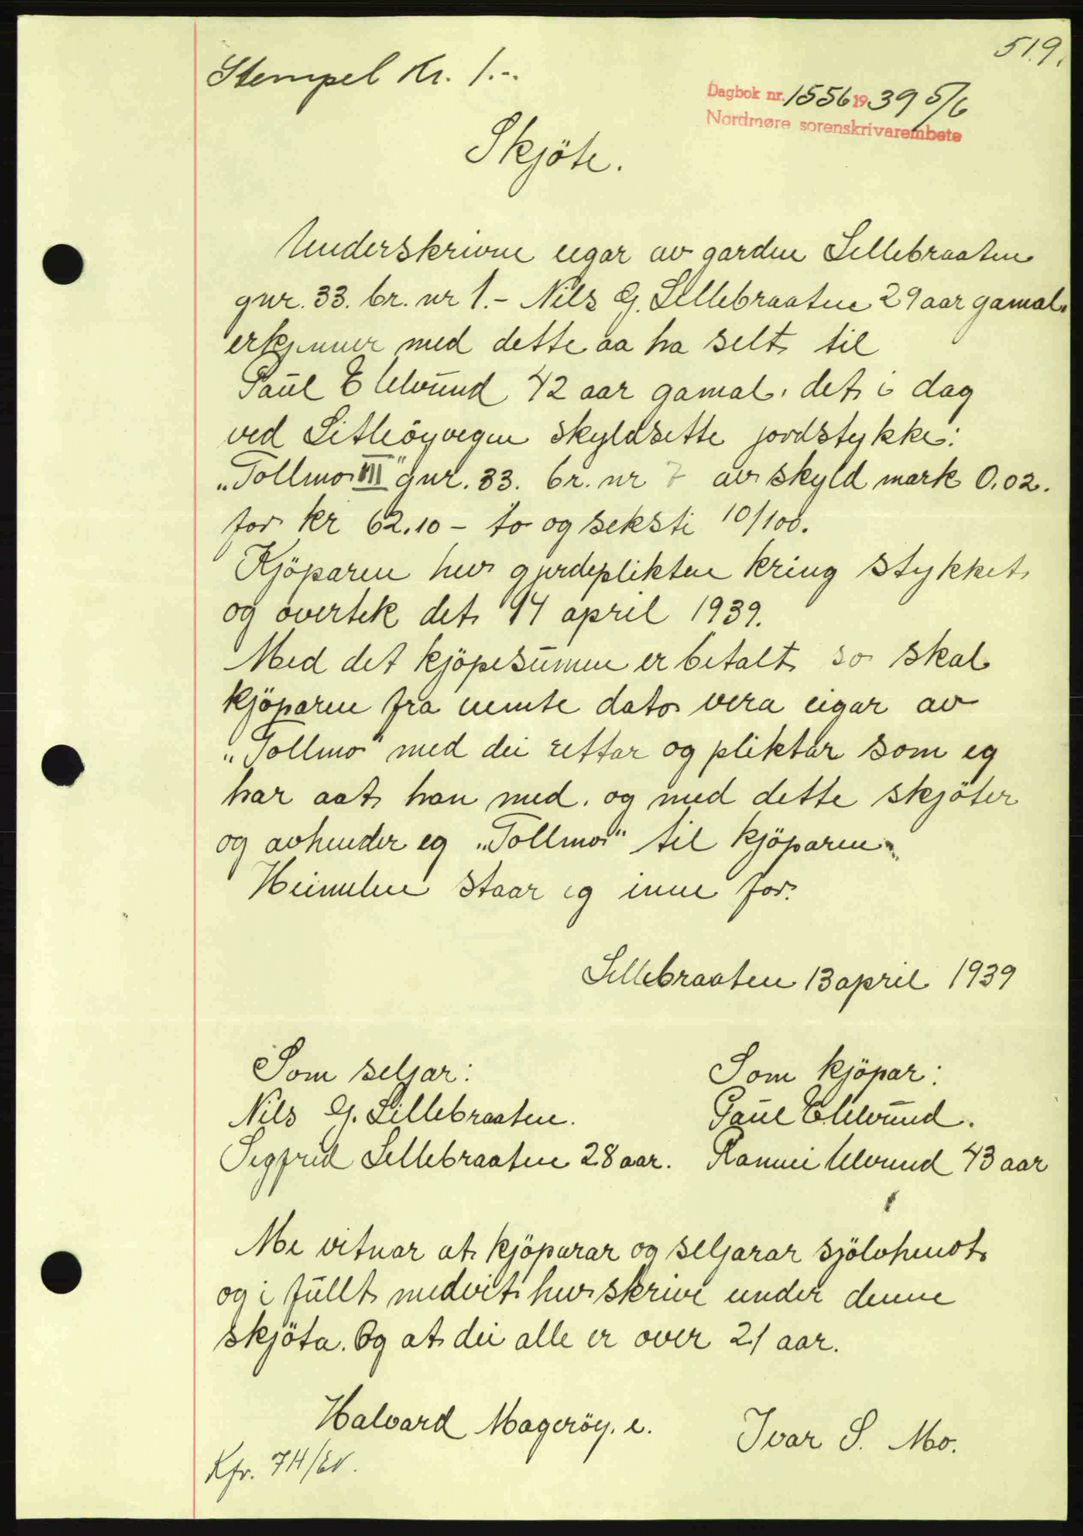 519.
Stempel Kr. 1.-.
Dagbok nr. 1556 1939 5/6
Nordmøre sorenskrivarembete
Skjöte.
Underskrivne eigar av garden Lillebraaten
gnr. 33. br. nr 1.- Nils G. Lillebraaten 29 aar gamal.
erkjenner med dette aa ha selt til
Paul E Ulvund 42 aar gamal. det i dag
ved Litleöyvegen skyldsette jordstykke:
„Tollmo VII" gnr. 33. br. nr 7 av skyld mark 0.02.
for kr 62.10 - to og seksti 10/100.
Kjöparen hev gjerdeplikten kring stykket
og overtek det 14 april 1939.
Med det kjöpesummen er betalt so skal
kjöparen fra nemte dato vera eigar av
„Tollmo" med dei rettar og pliktar som eg
har aat han med. og med dette skjöter
og avhender eg „Tollmo" til kjöparen.
Heimelen staar eg inne for.
Lillebraaten 13 april 1939
Som seljar: Som kjöpar:
Nils G. Lillebraaten. Paul E Ulvund.
Sigfrid Lillebraaten 28 aar. Ulvund 43 aar
Me vitnar at kjöparar og seljarar sjölvhendt
og i fullt medvit hev skrive under denne
skjöta. Og at dei alle er over 21 aar.
Halvard Mageröy. e. Ivar S. Mo.
Kfr. 74/EV.